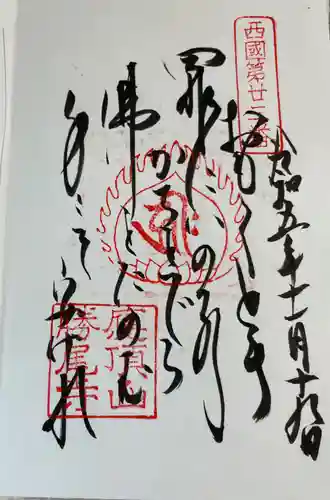 西國第廿三番
令和五年十一月十九日
おもくとも
罪にはのりの
かちをでら
佛をたのむ
身こそ安けれ
應頂山
勝尾寺